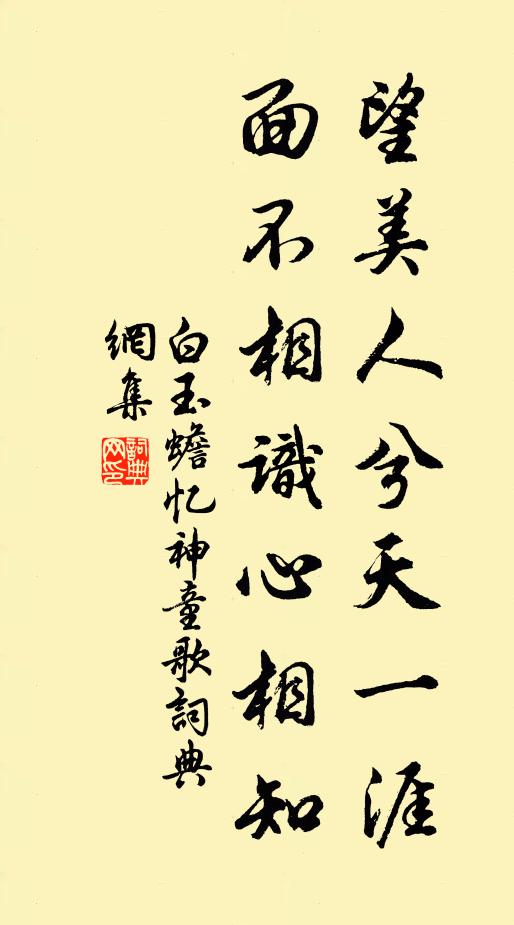 望美人兮天一涯
面不相識心相知
白玉蟾忆神童歌詞典
網集
詞典网印